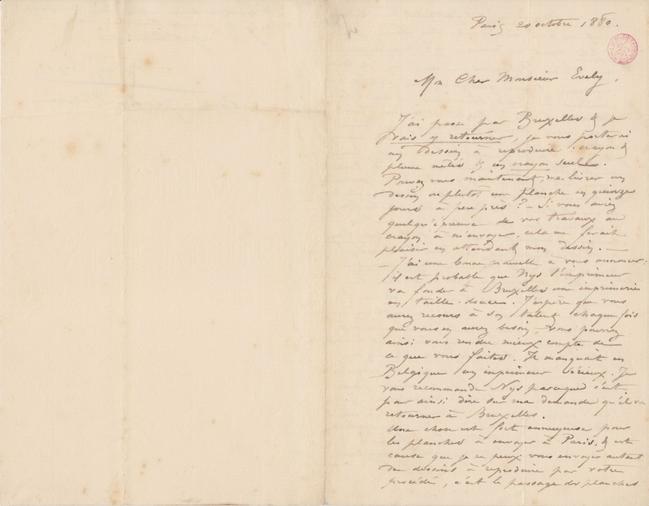 Paris 20 octobre 1880.
Mon Cher Monsieur Evely,
J'ai passé par Bruxelles & je
vais y retourner, je vous porterai
un dessin à reproduire crayon &
plume mêlés & un crayon seul.
Pouvez vous maintenant, me livrer un
dessin ou plutôt, un planche en quinze
jours à peu près ? — Si vous aviez
quelqu'épreuve de vos travaux au
crayon à m'envoyer, cela me ferait
plaisir en attendant mon dessin. —
— J'ai une bonne nouvelle à vous annoncer:
il est probable que Nys l'imprimeur
va fonder à Bruxelles une imprimerie
en taille-douce. J'espère que vous
aurez recours à son talent chaque fois
que vous en aurez besoin, vous pourrez
ainsi vous rendre mieux compte de
ce que vous faites. Il manquait en
Belgique un imprimeur sérieux. Je
vous recommande Nys parceque c'est
pour ainsi dire sur ma demande qu'il va
retourner à Bruxelles.
Une chose est fort ennuyeuse pour
les planches à envoyer à Paris, & est
cause que je ne peux vous envoyer autant
de dessins à reproduire par votre
procédé, c'est le passage des planches